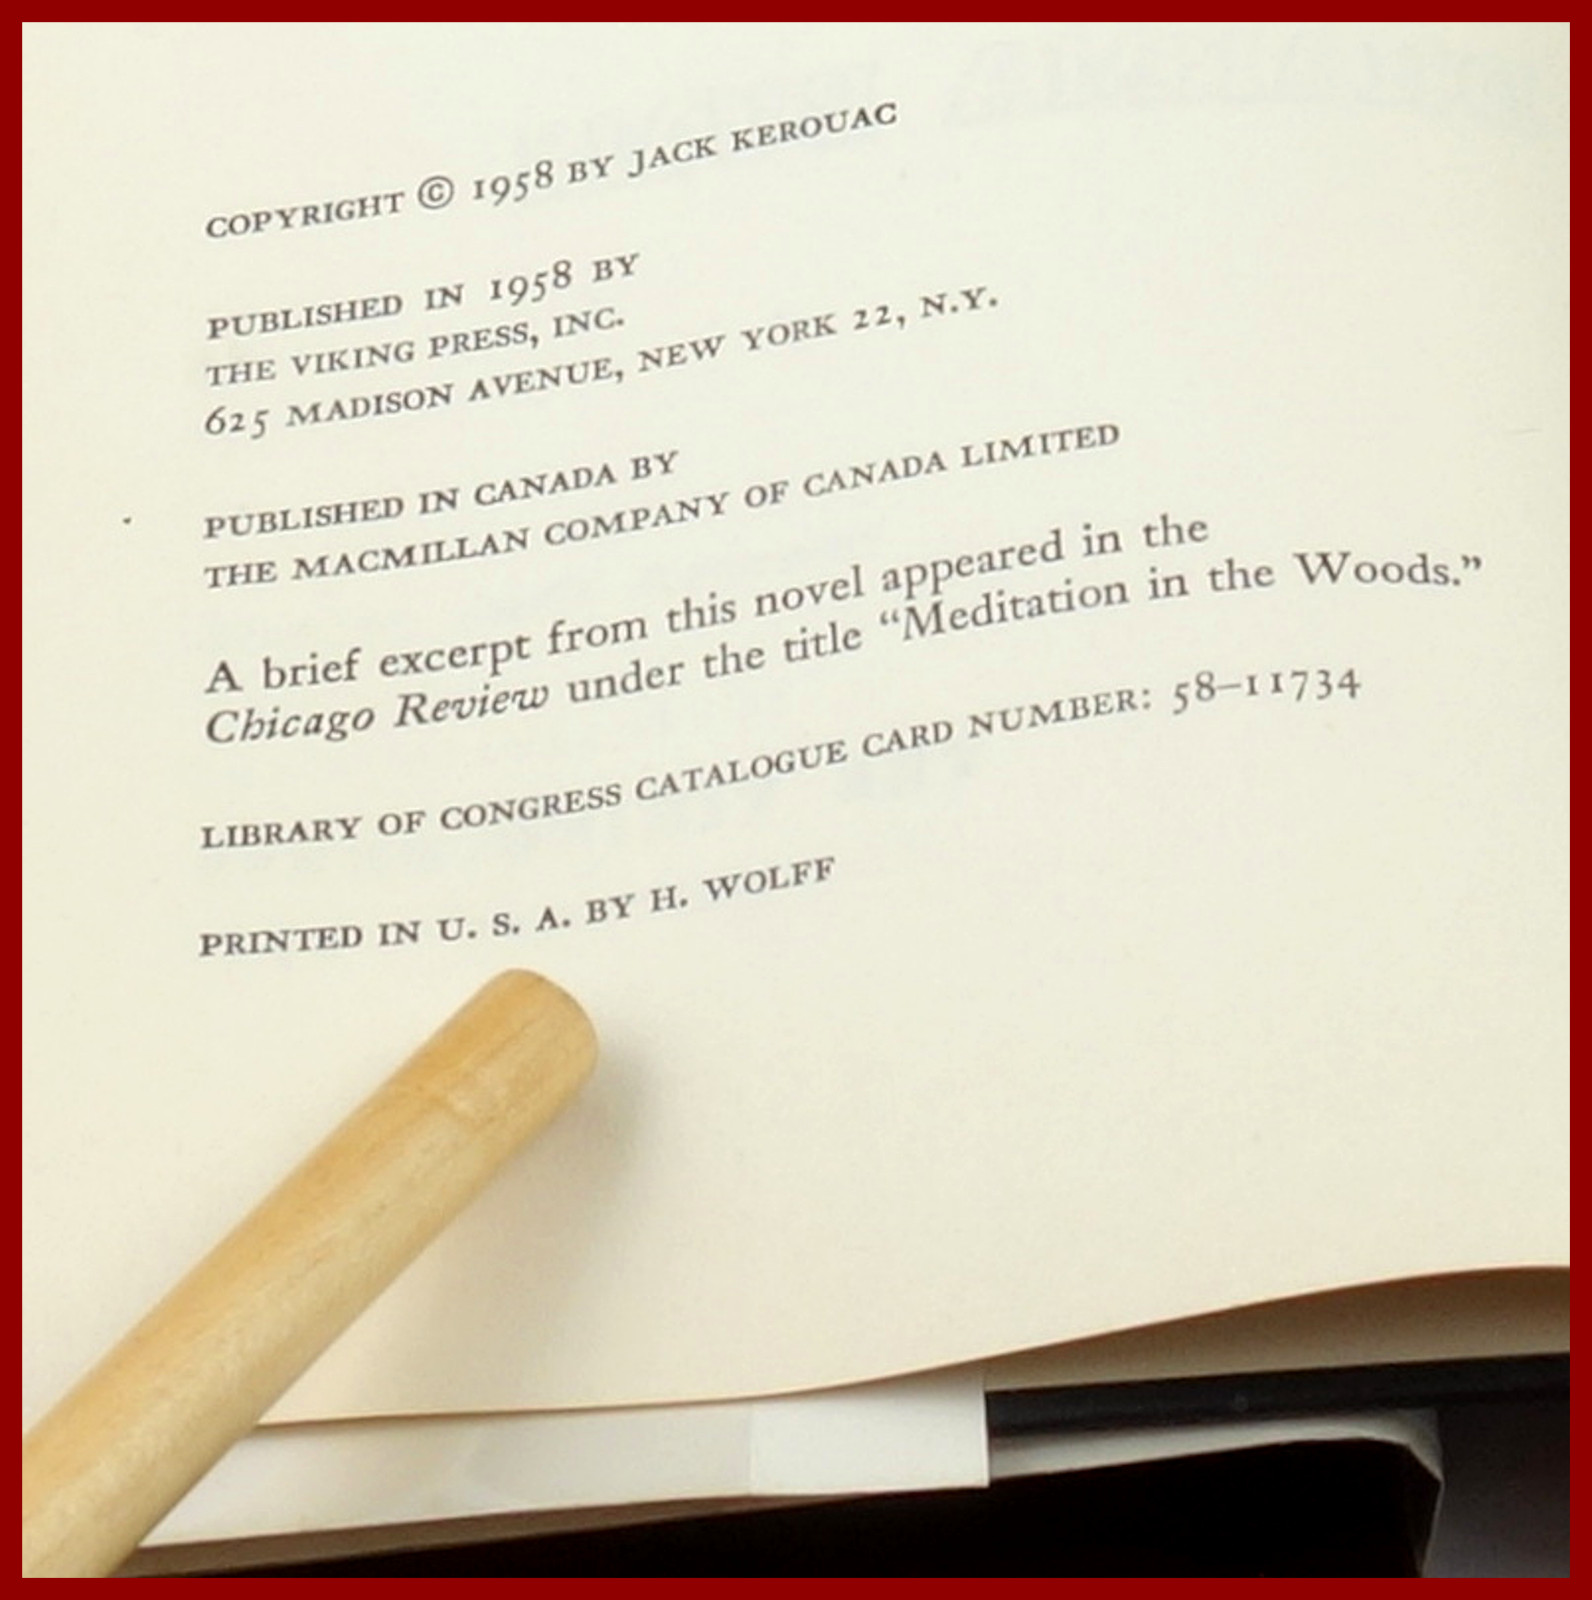 COPYRIGHT © 1958 BY JACK KEROUAC
PUBLISHED IN 1958 BY
THE VIKING PRESS, INC.
625 MADISON AVENUE, NEW YORK 22, N.Y.
PUBLISHED IN CANADA BY
THE MACMILLAN COMPANY OF CANADA LIMITED
A brief excerpt from this novel appeared in the
Chicago Review under the title “Meditation in the Woods.”
LIBRARY OF CONGRESS CATALOGUE CARD NUMBER: 58–11734
PRINTED IN U. S. A. BY H. WOLFF